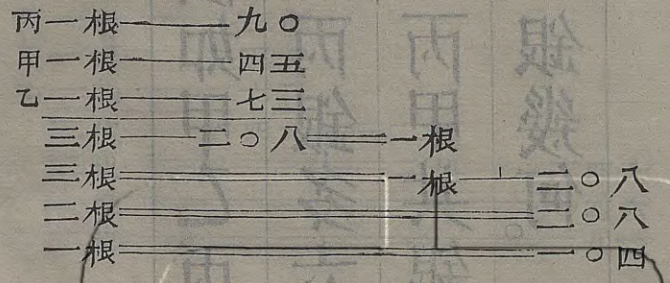 丙一根——九〇
甲一根——四五
乙一根——七三
三根——二〇八══一根
三根══一根——二〇八
二根══二〇八
一根══一〇四